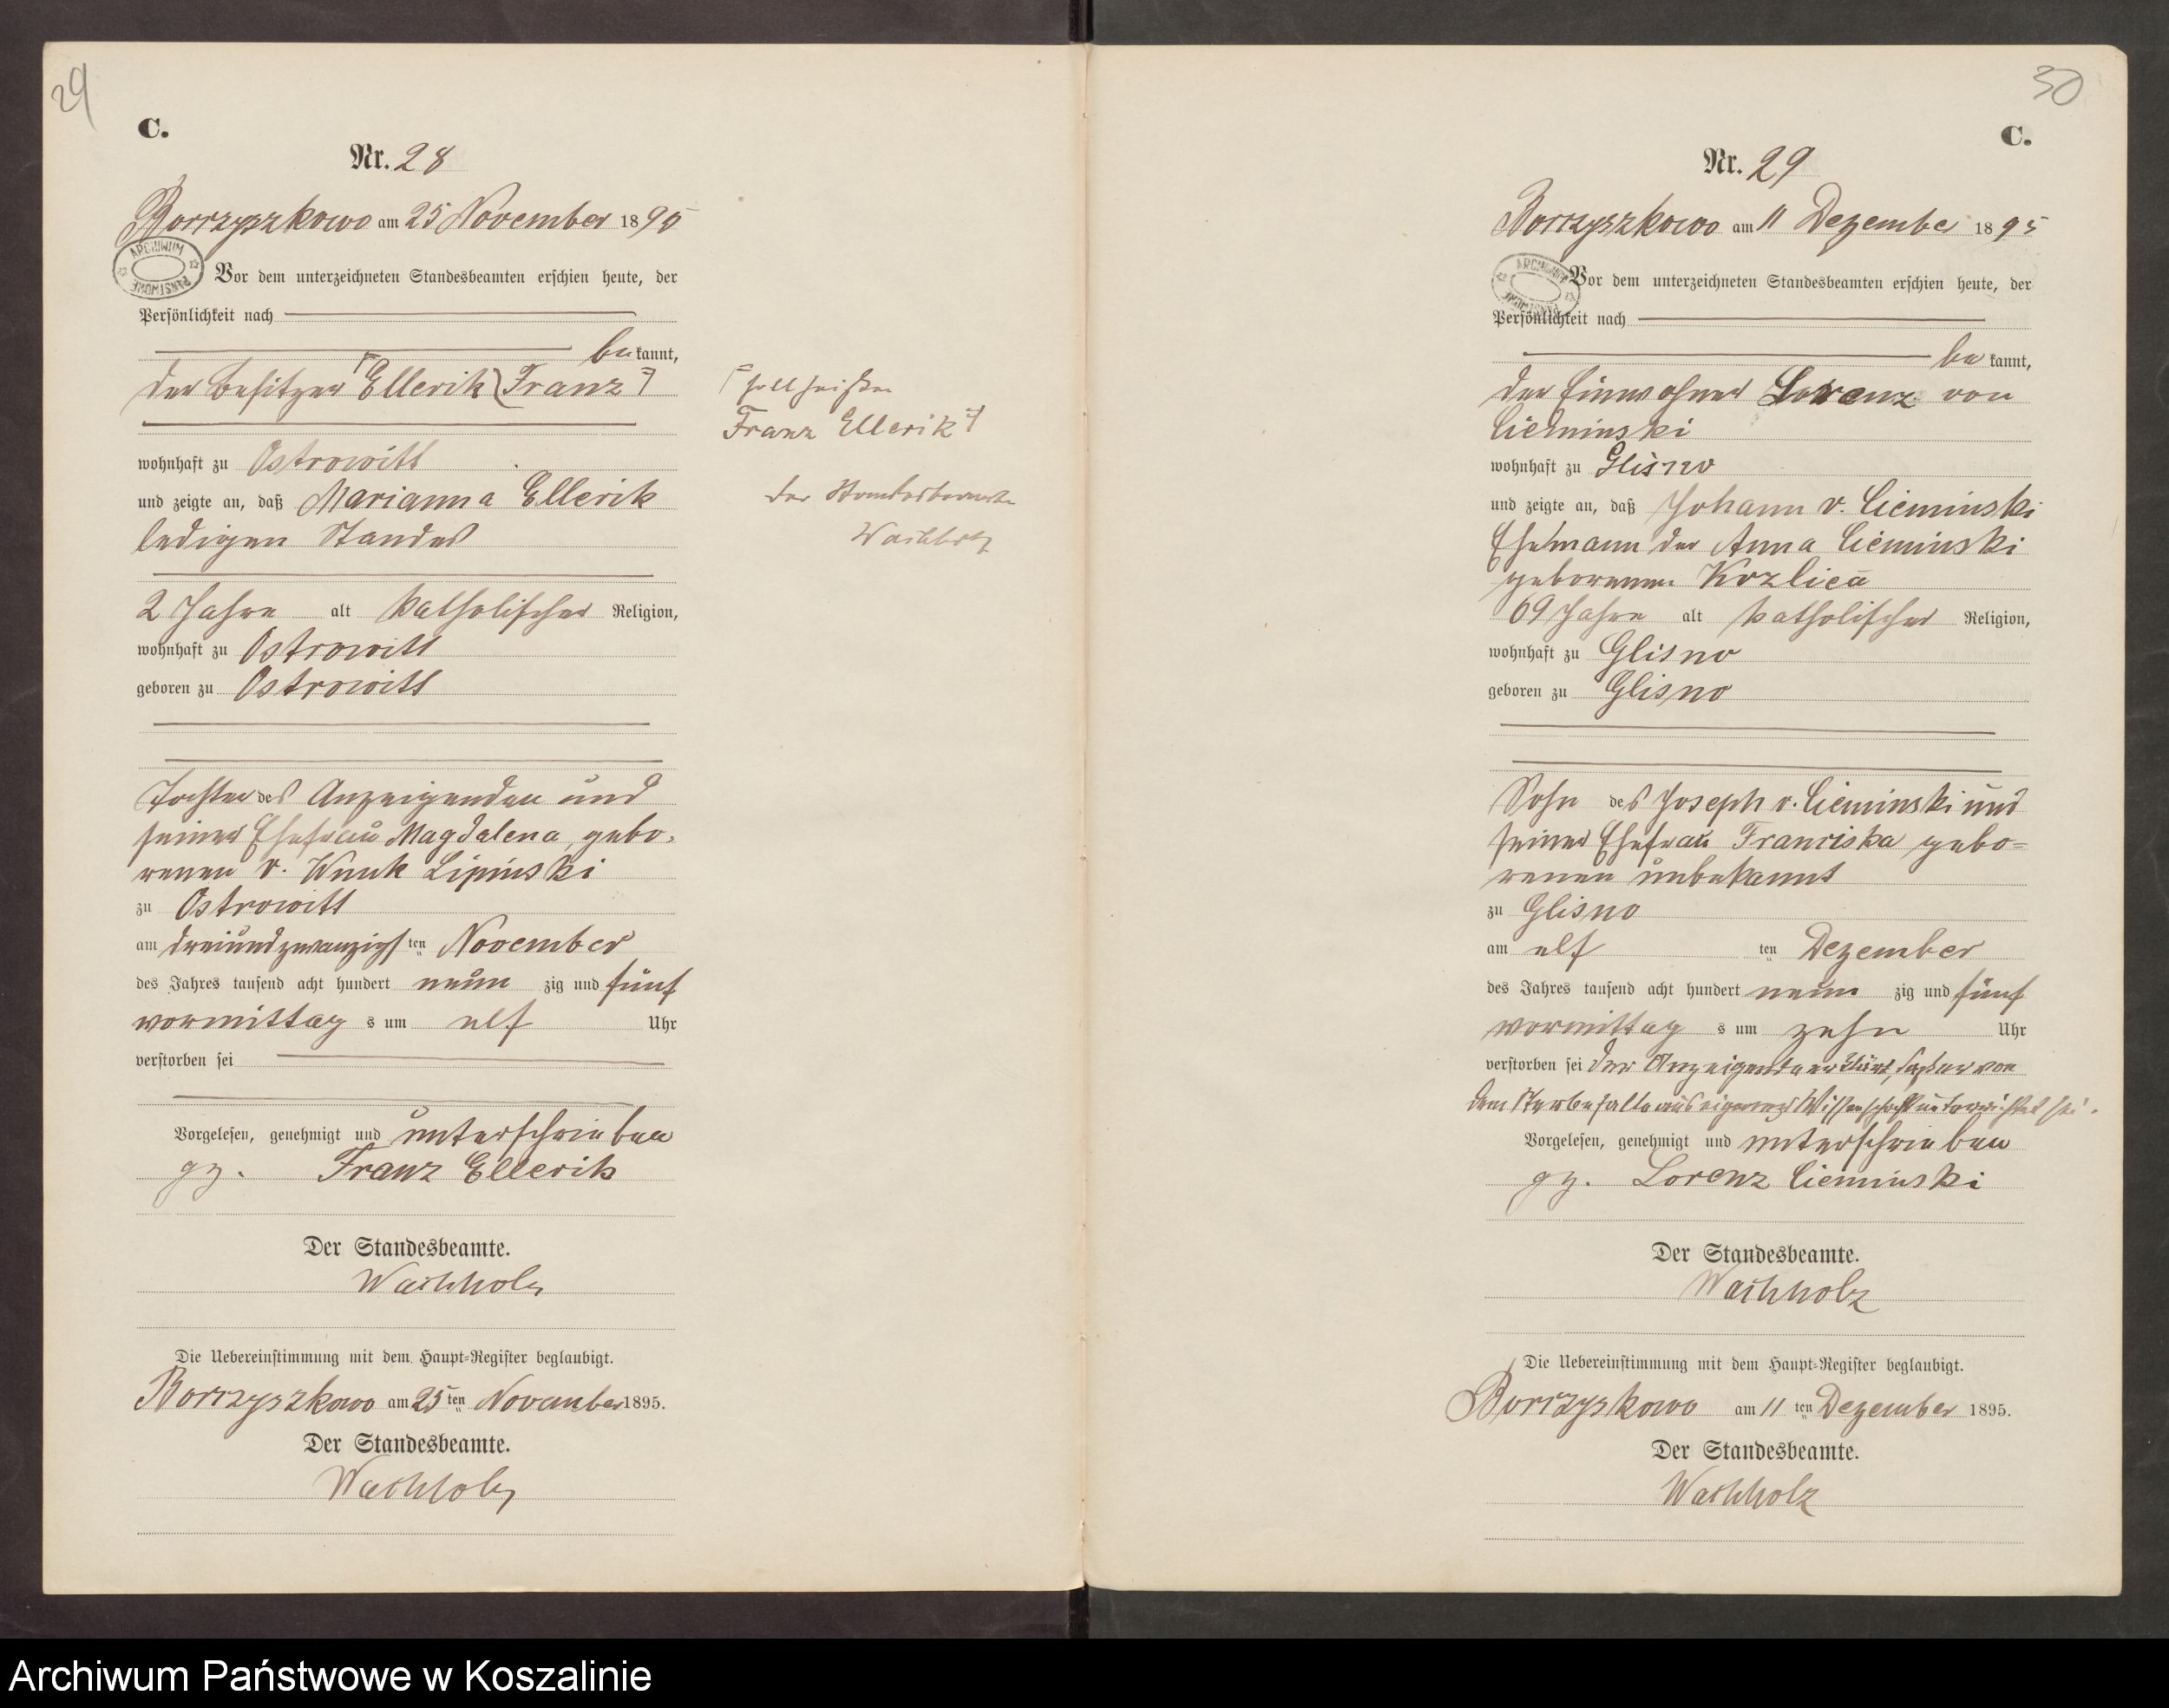 29
C.
Nr. 28
Borrzyszkowo am 25 November 1895
ARCHIWUM PAŃSTWOWE
Vor dem unterzeichneten Standesbeamten erschien heute, der
Persönlichkeit nach
bekannt,
der Besitzer Ellerik Franz
wohnhaft zu Ostrowitt
und zeigte an, daß Marianna Ellerik
ledigen Standes
2 Jahre alt katholischer Religion,
wohnhaft zu Ostrowitt
geboren zu Ostrowitt
Tochter des Anzeigenden und
seiner Ehefrau Magdalena, gebo-
renen v. Wnuk Lipinski
zu Ostrowitt
am dreiundzwanzigsten November
des Jahres tausend acht hundert neunzig und fünf
vormittags um elf Uhr
verstorben sei
Vorgelesen, genehmigt und unterschrieben
gz. Franz Ellerik
Der Standesbeamte.
Wachholz
Die Uebereinstimmung mit dem Haupt-Register beglaubigt.
Borrzyszkowo am 25ten November 1895.
Der Standesbeamte.
Wachholz
soll heißen
Franz Ellerik
der Standesbeamte
Wachholz
30
C.
Nr. 29
Borrzyszkowo am 11 Dezember 1895
ARCHIWUM PAŃSTWOWE
Vor dem unterzeichneten Standesbeamten erschien heute, der
Persönlichkeit nach
bekannt,
der Einwohner Lorenz von
Cieminski
wohnhaft zu Glisno
und zeigte an, daß Johann v. Cieminski
Ehemann der Anna Cieminski
geborenen Kozlica
69 Jahre alt katholischer Religion,
wohnhaft zu Glisno
geboren zu Glisno
Sohn des Joseph v. Cieminski und
seiner Ehefrau Franciska gebo-
renen unbekannt
zu Glisno
am elften Dezember
des Jahres tausend acht hundert neunzig und fünf
vormittags um zehn Uhr
verstorben sei der Anzeigende erklärt, daß er von
dem Sterbefalle aus eigener Wissenschaft unterrichtet sei.
Vorgelesen, genehmigt und unterschrieben
gz. Lorenz Cieminski
Der Standesbeamte.
Wachholz
Die Uebereinstimmung mit dem Haupt-Register beglaubigt.
Borrzyskowo am 11ten Dezember 1895.
Der Standesbeamte.
Wachholz
Archiwum Państwowe w Koszalinie